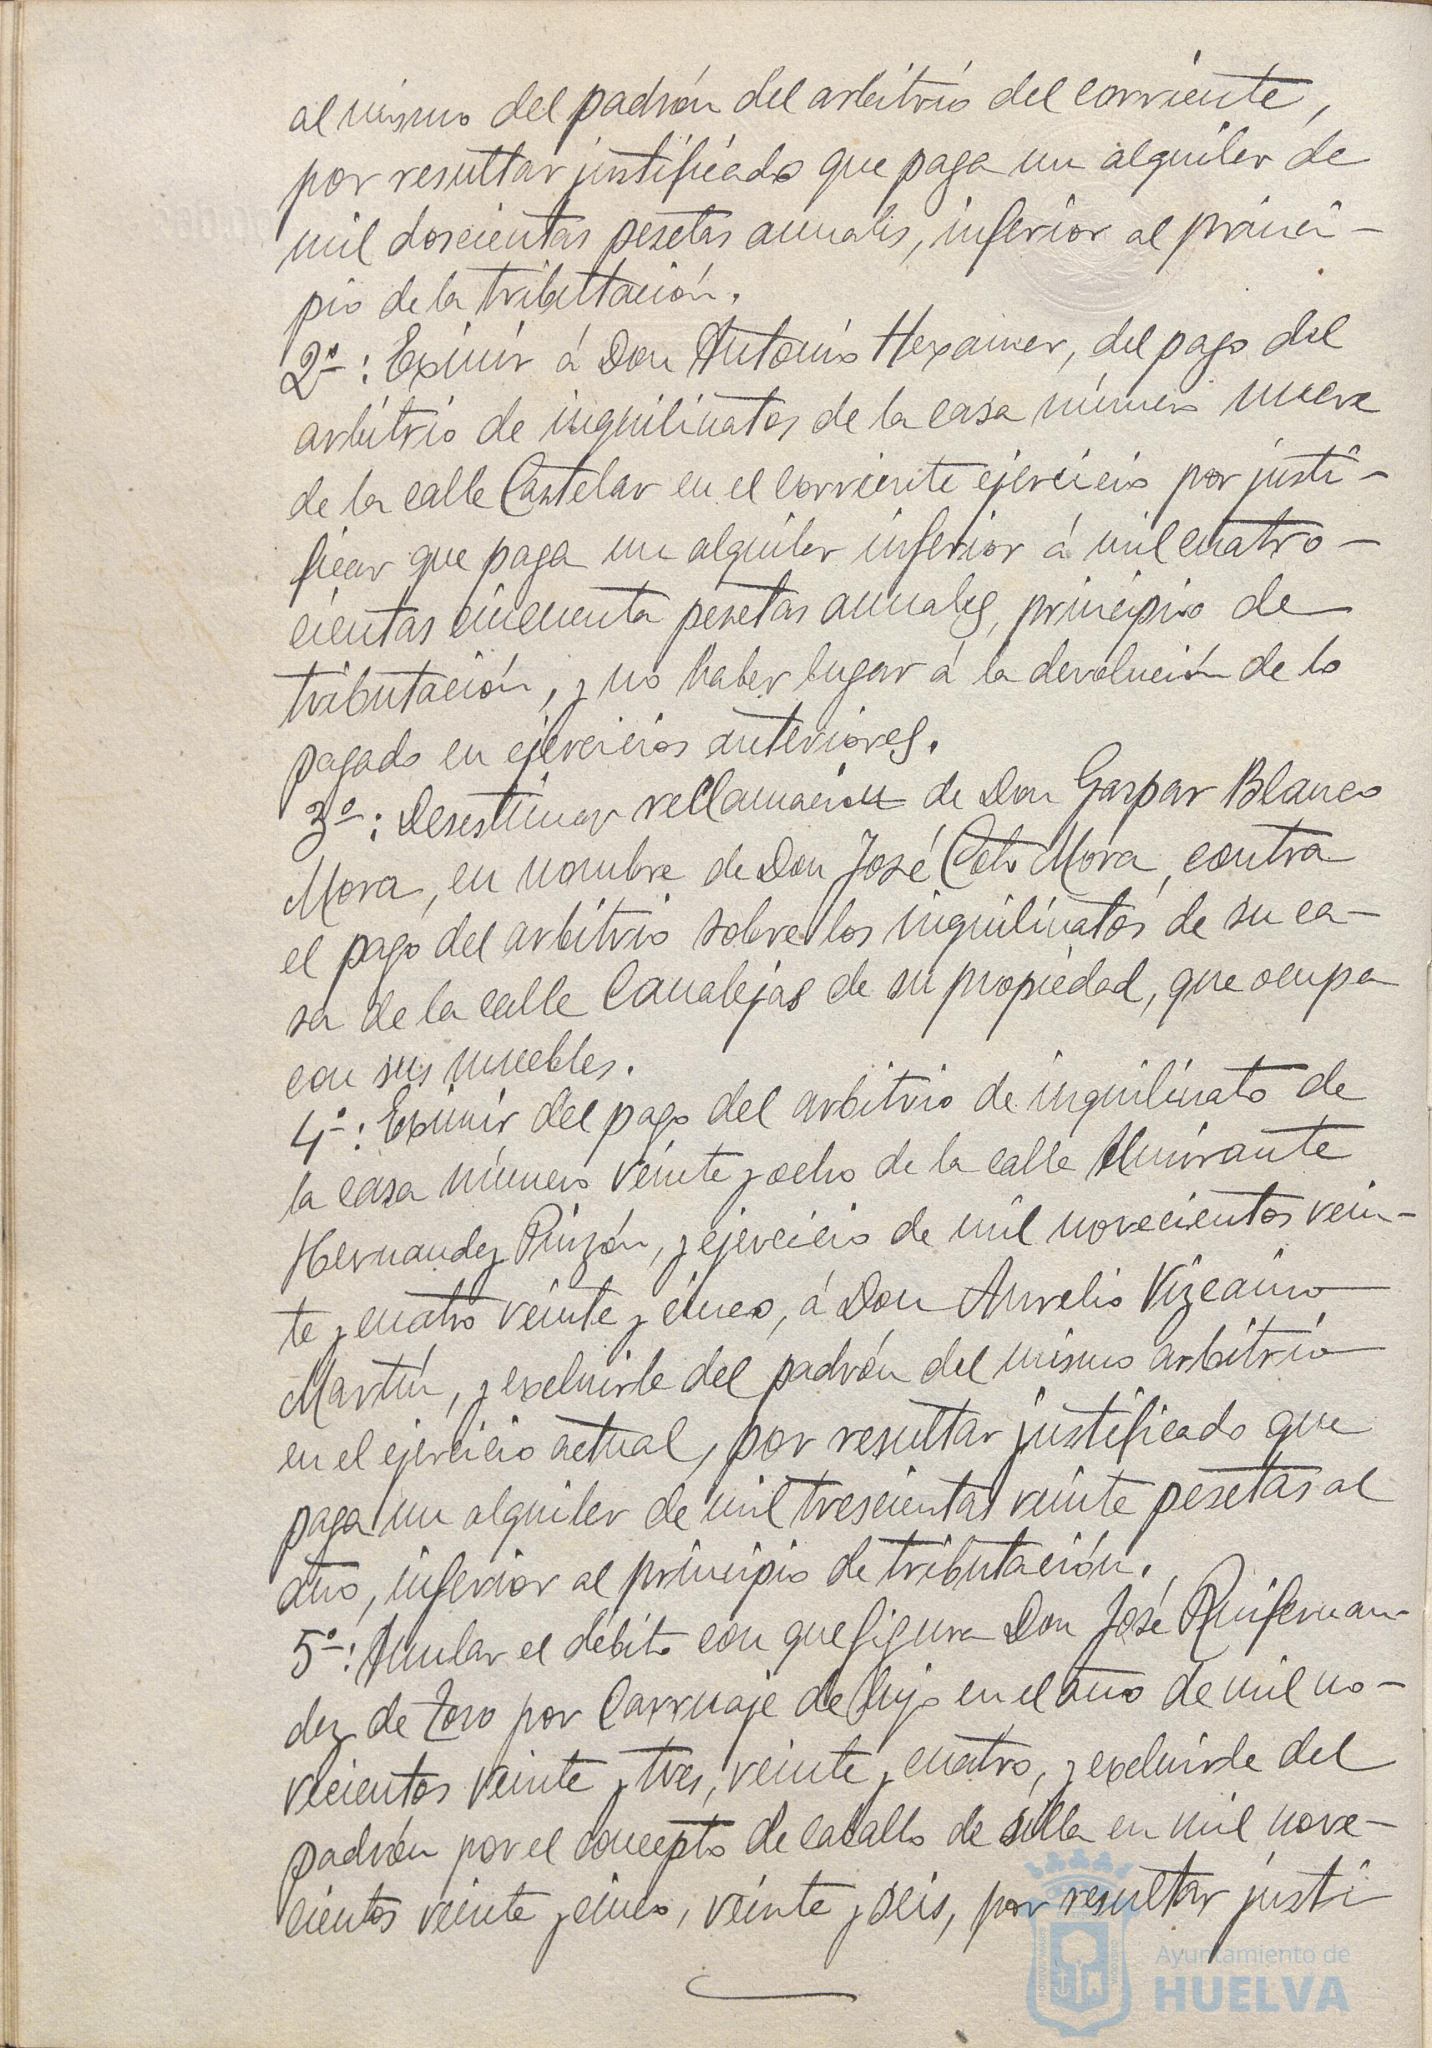 al mismo del padrón del arbitrio del corriente,
por resultar justificado que paga un alquiler de
mil doscientas pesetas anuales, inferior al princi-
pio de la tributación.
2º: Eximir á Don Antonio Hexainer, del pago del
arbitrio de inquilinatos de la casa número nueve
de la calle Castelar en el corriente ejercicio por justi-
ficar que paga un alquiler inferior á mil cuatro-
cientas cincuenta pesetas anuales, principio de
tributación, y no haber lugar á la devolución de lo
pagado en ejercicios anteriores.
3º: Desestimar reclamación de Don Gaspar Blanco
Mora, en nombre de Don José Mora, contra
el pago del arbitrio sobre los inquilinatos de su ca-
sa de la calle Canalejas de su propiedad, que ocupa
con sus muebles.
4º: Eximir del pago del arbitrio de inquilinato de
la casa número veinte y ocho de la calle Almirante
Hernandez Pinzón, y ejercicio de mil novecientos vein-
te y cuatro veinte y cinco, á Don Aurelio Vizcaino
Martín, y excluirle del padrón del mismo arbitrio
en el ejercicio actual, por resultar justificado que
paga un alquiler de mil trescientas veinte pesetas al
año, inferior al principio de tributación.
5º: Anular el débito con que figura Don José Ruifernan-
dez de Toro por Carruaje de lujo en el año de mil no-
vecientos veinte y tres, veinte y cuatro, y excluirle del
padrón por el concepto de caballo de silla en mil nove-
cientos veinte y cinco, veinte y seis, por resultar justi
Ayuntamiento de
HUELVA